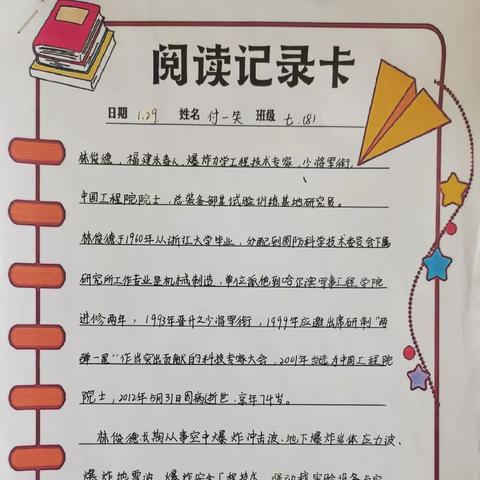 阅读记录卡
日期 1.29 姓名 付一笑 班级 七.(8)
林俊德，福建永春人，爆炸力学工程技术专家，少将军衔，
中国工程院院士，总装备部某试验训练基地研究员。
林俊德于1960年从浙江大学毕业，分配到国防科学技术委员会下属
研究所工作专业是机械制造，单位派他到哈尔滨军事工程学院
进修两年，1993年晋升之少将军衔，1999年应邀出席研制"两
弹一星"作出突出贡献的科技专家大会，2001年当选为中国工程院
院士，2012年5月31日因病逝世，享年74岁。
林俊德长期从事空中爆炸冲击波、地下爆炸岩体应力波、
爆炸地震波、爆炸安全工程技术、强动载实验设备与实